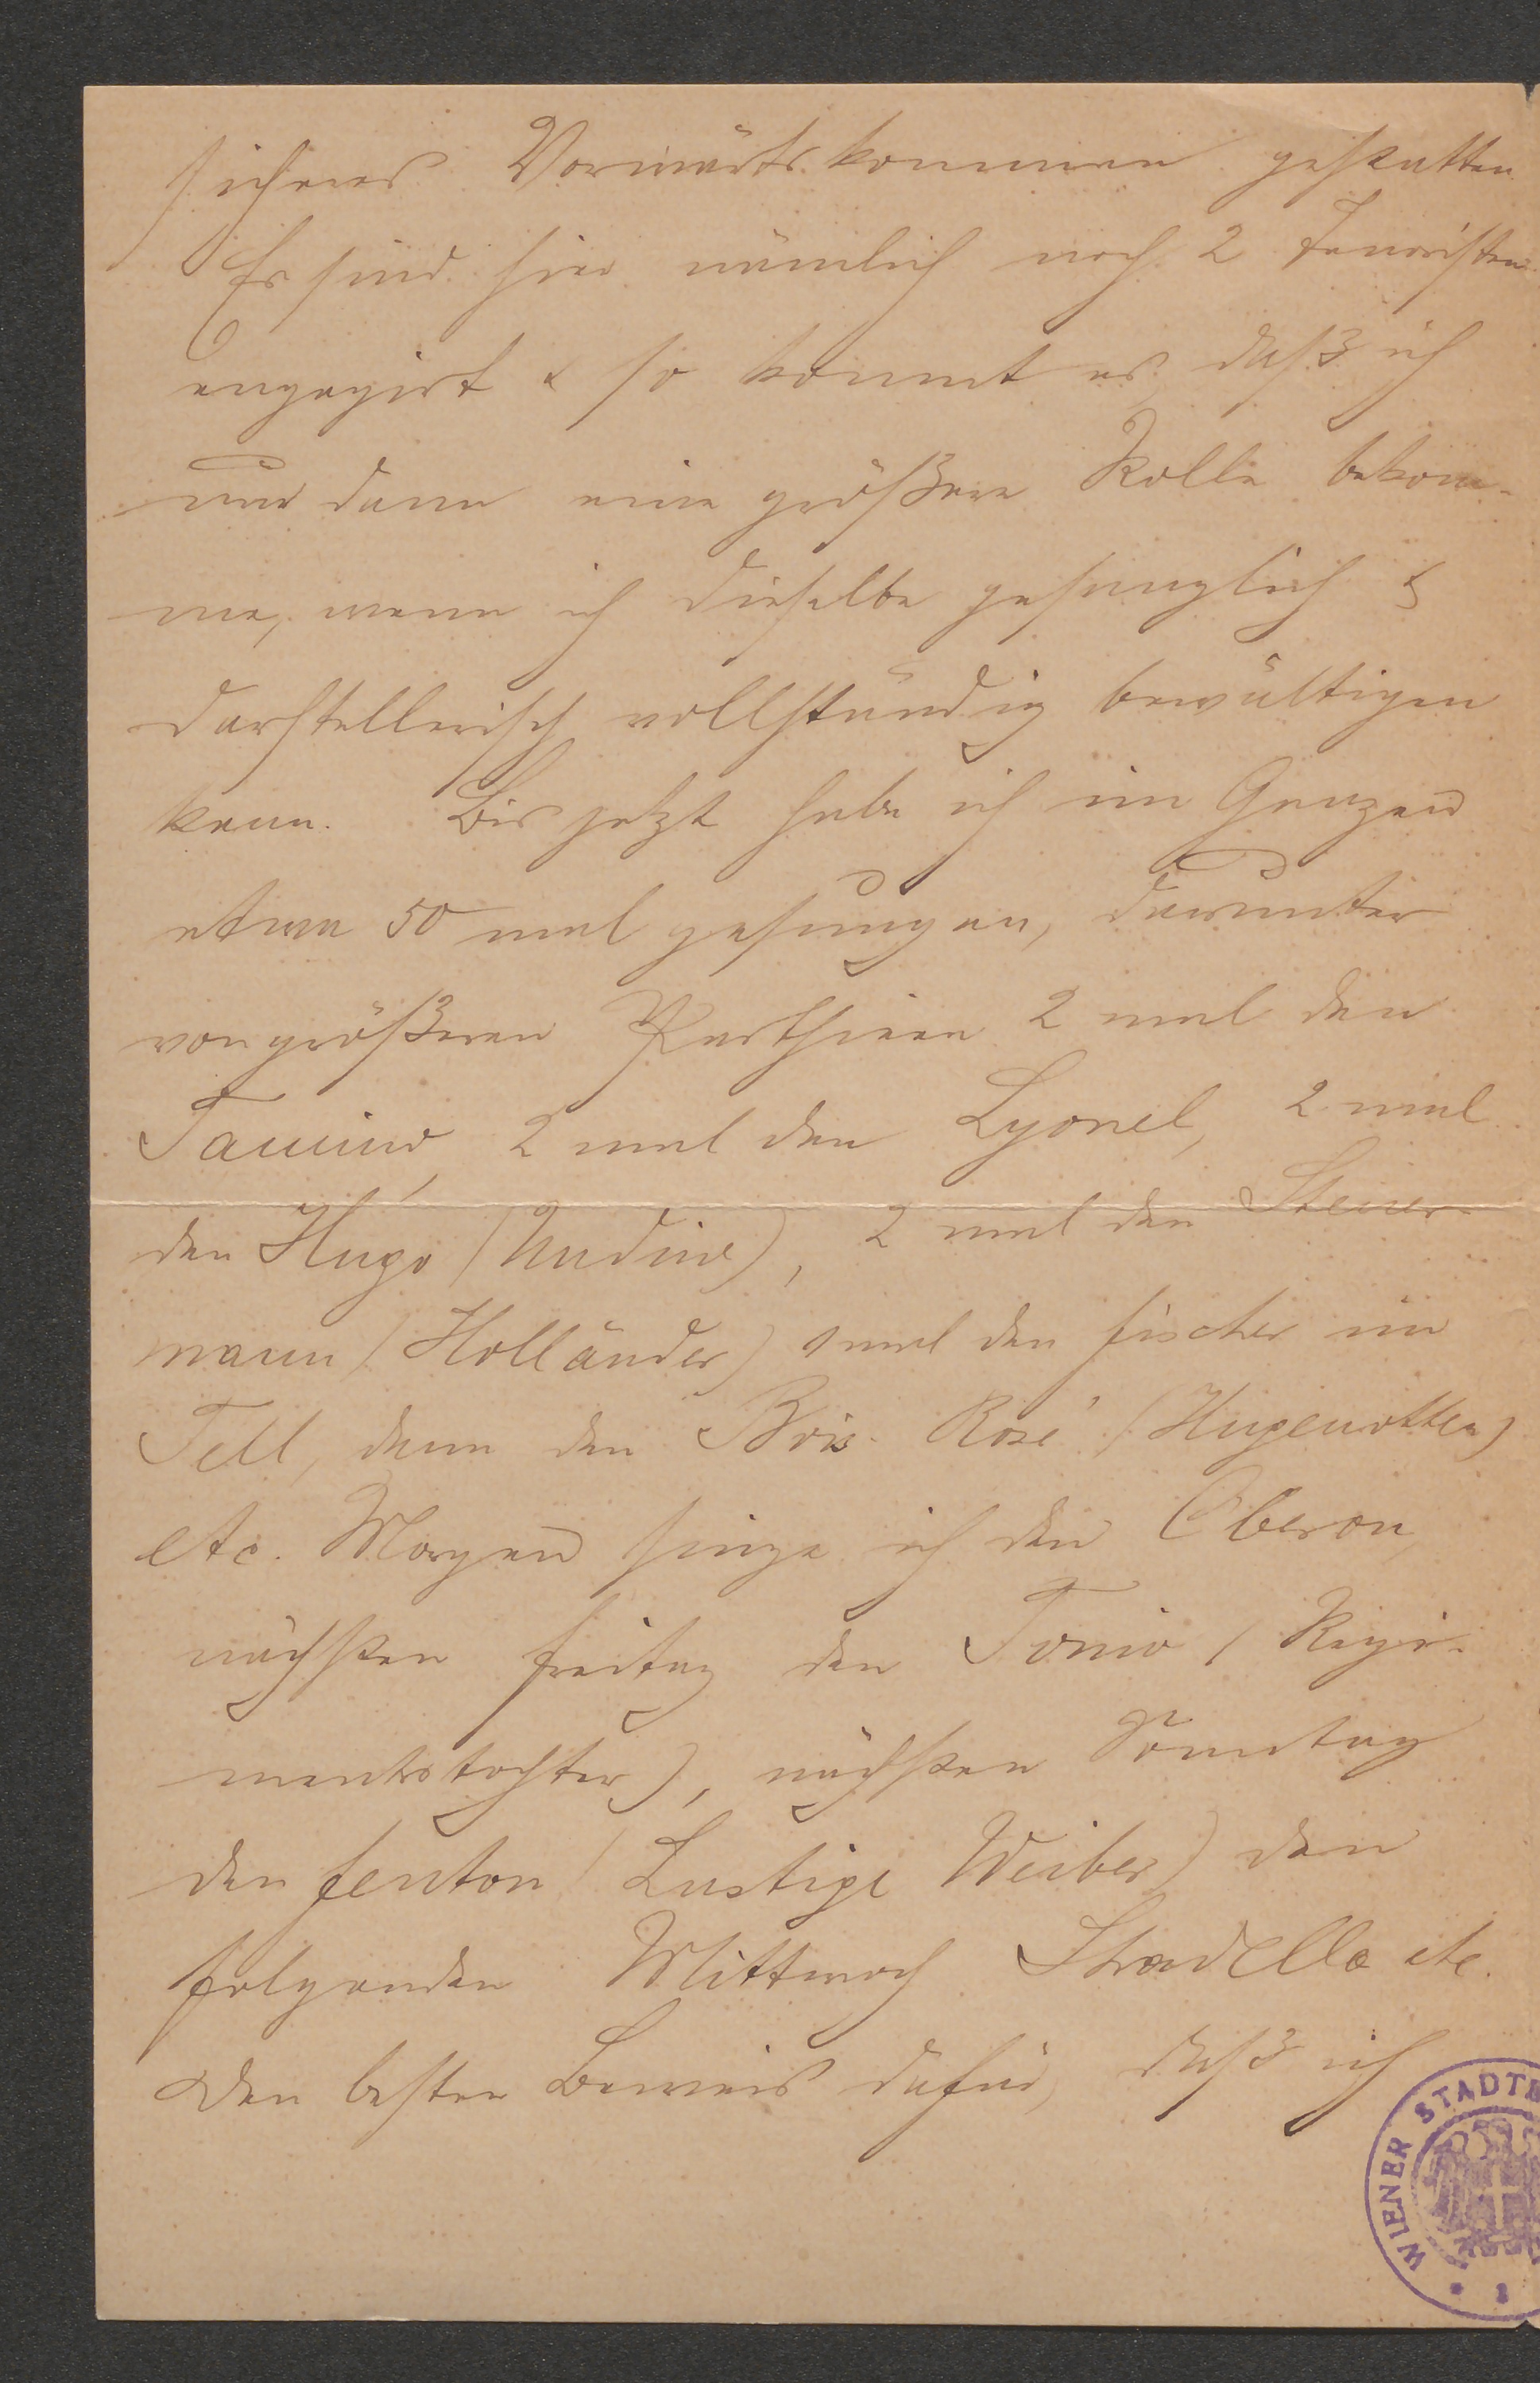 sicheres Vorwärtskommen gestatten.
Es sind hier nämlich noch 2 Tenoristen
engagirt & so kommt es, daß ich
nur dann eine größere Rolle bekom-
me, wenn ich dieselbe gesanglich &
darstellerisch vollständig bewältigen
kann. Bis jetzt habe ich im Ganzen
etwa 50 mal gesungen, darunter
von größeren Parthieen 2 mal den
Tamino, 2 mal den Lyonel, 2 mal
den Hugo (Undine), 2 mal den Steuer-
mann (Holländer) 1 mal den Fischer im
Tell, dann den Bois-Rosé (Hugenotten)
etc. Morgen singe ich den Oberon,
nächsten Freitag den Tonio (Regi-
mentstochter), nächsten Sonntag
den Fenton (Lustige Weiber) den
folgenden Mittwoch Stradella etc.
Den besten Beweis dafür, daß ich
WIENER STADT